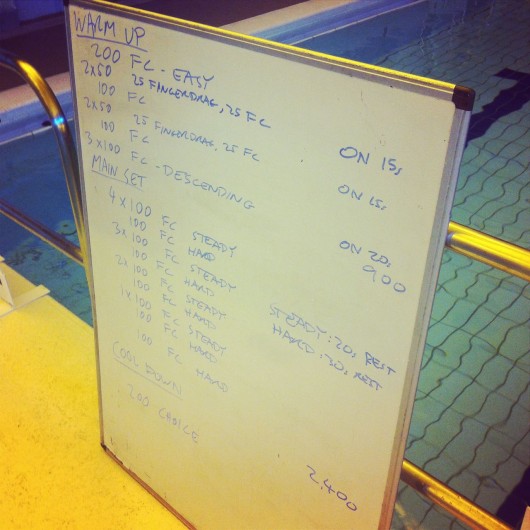 WARM UP
200 FC - EASY
2x50 25 FINGERDRAG, 25 FC ON 15s
100 FC
2x50 25 FINGERDRAG, 25 FC ON 15s
100 FC
3x100 FC - DESCENDING ON 20s
900
MAIN SET
4x100 FC STEADY
100 FC HARD
3x100 FC STEADY
100 FC HARD
2x100 FC STEADY
100 FC HARD
1x100 FC STEADY
100 FC HARD
100 FC HARD
STEADY: 20s REST
HARD: 30s REST
COOL DOWN
200 CHOICE
2,400